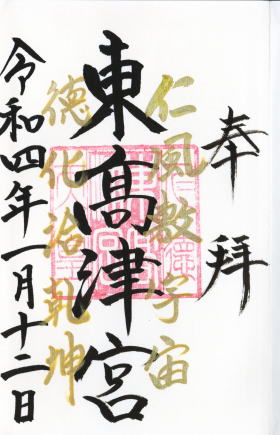 奉拝
仁風敷宇宙
東高津宮
徳化治乾坤
令和四年一月十二日